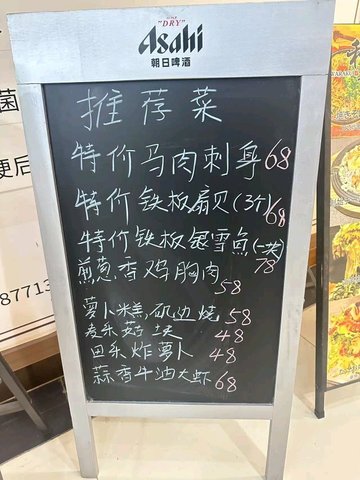 "DRY"
Asahi
朝日啤酒
推荐菜
特价马肉刺身68
特价铁板扇贝(3个)68
特价铁板银雪鱼(一块)78
煎葱香鸡胸肉58
萝卜糕,矶边烧58
麦乐菇块48
田乐炸萝卜48
蒜香牛油大虾68
菌
便后
87713